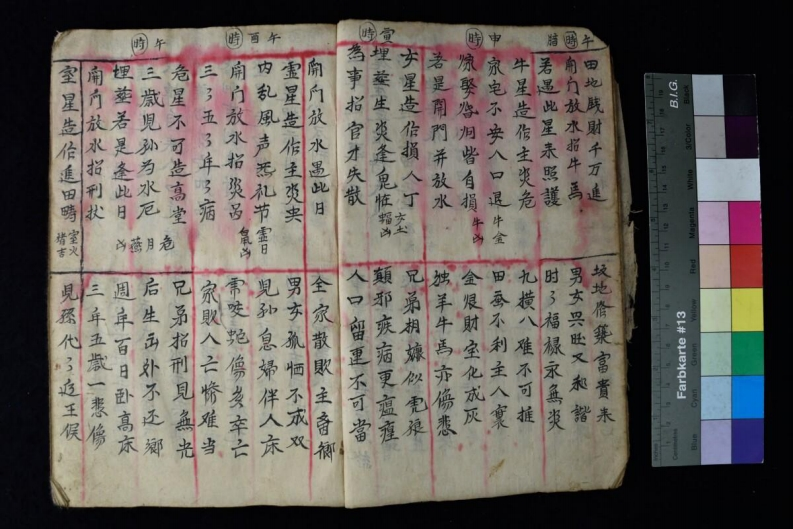 午時
申時
當時
午酉時
午時
田地戝財千万進
坟地修築富貴来
開門放水招牛馬
男女兴旺又和諧
若遇此星来照護
时々福禄永無災
牛星造作主災危
九横八难不可推
家宅不安人口退 牛金牛凶
田蚕不利主人衰
嫁娶婚姻皆自損
金艮財宝化成灰
若是開門并放水
独羊牛馬亦傷悲
女星造作損人丁
兄弟相嫌似虎狼
埋葬生災逢鬼怪 女土蝠凶
顛邪疾病更瘟
為事招官才失散
人口留連不可當
開門放水遇此日
全家散敗主离鄉
虛星造作主災央
男女孤恓不成双
内乱風声无礼节 虛日鼠凶
見孫息婦伴人床
開門放水招災咎
蛇傷卒亡
三々五々年々病
家敗人亡脩难当
危星不可造高堂
兄弟招刑見無光
三歲児孙为水厄 危月燕凶
后生出外不还鄉
埋葬若是逢此日
週年百日卧高床
開門放水招刑杖
三年五歲一悲傷
室星造作進田時 室火猪吉
見孫代々近王侯
B.I.G.
Farbkarte #13
Blue
Cyan
Green
Yellow
Red
Magenta
White
3/Color
Black
Centimetres